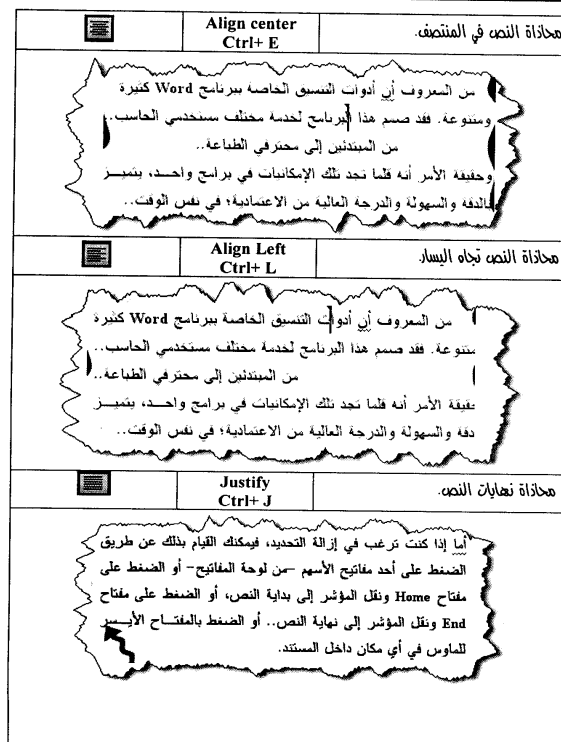 محاذاة النص في المنتصف.
Align center
Ctrl+ E
من المعروف أن أدوات التنسيق الخاصة ببرنامج Word كثيرة
ومتنوعة. فقد صمم هذا البرنامج لخدمة مختلف مستخدمي الحاسب..
من المبتدئين إلى محترفي الطباعة..
وحقيقة الأمر أنه قلما تجد تلك الإمكانيات في برامج واحـــد، يتميـــز
بالدقة والسهولة والدرجة العالية من الاعتمادية؛ في نفس الوقت..
محاذاة النص تجاه اليسار.
Align Left
Ctrl+ L
من المعروف أن أدوات التنسيق الخاصة ببرنامج Word كثيرة
متنوعة. فقد صمم هذا البرنامج لخدمة مختلف مستخدمي الحاسب..
من المبتدئين إلى محترفي الطباعة..
حقيقة الأمر أنه قلما تجد تلك الإمكانيات في برامج واحـــد، يتميـــز
دقة والسهولة والدرجة العالية من الاعتمادية؛ في نفس الوقت..
محاذاة نهايات النص.
Justify
Ctrl+ J
أما إذا كنت ترغب في إزالة التحديد، فيمكنك القيام بذلك عن طريق
الضغط على أحد مفاتيح الأسهم –من لوحة المفاتيح– أو الضغط على
مفتاح Home ونقل المؤشر إلى بداية النص، أو الضغط على مفتاح
End ونقل المؤشر إلى نهاية النص.. أو الضغط بالمفتـــاح الأيـــسر
للماوس في أي مكان داخل المستند.